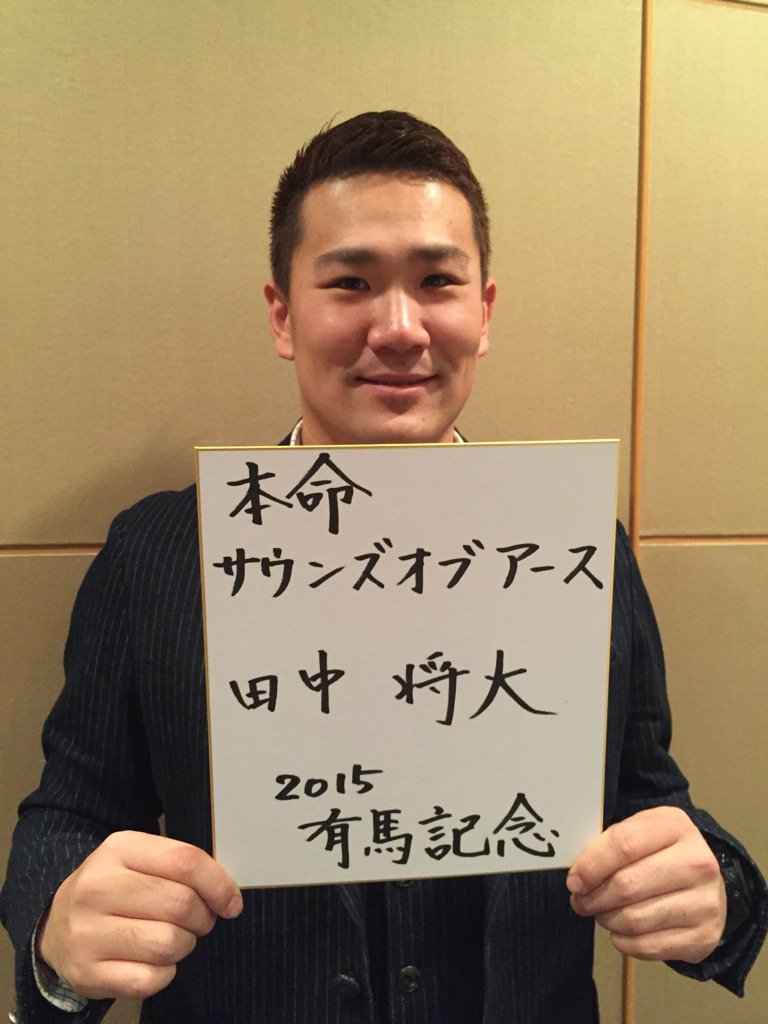 本命
サウンズオブアース
田中 将大
2015
有馬記念